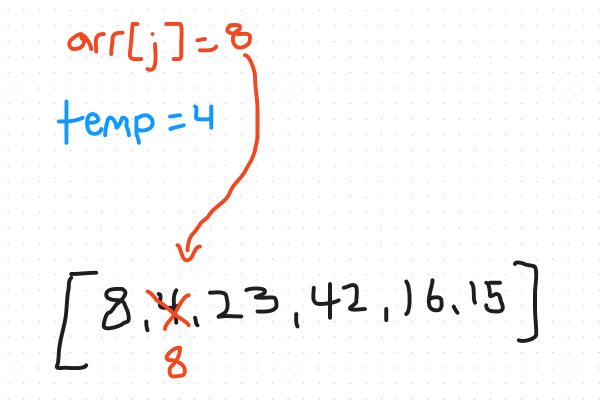 arr[j]=8
temp=4
[8,4,23,42,16,15]
8